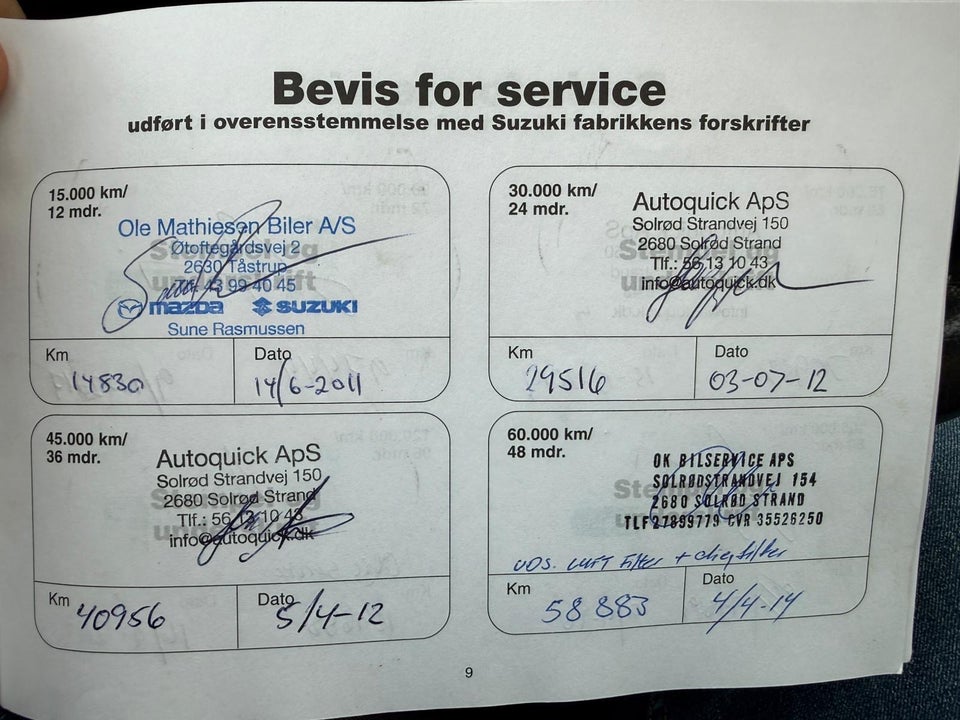 Bevis for service
udført i overensstemmelse med Suzuki fabrikkens forskrifter
15.000 km/
12 mdr.
Ole Mathiesen Biler A/S
Øtoftegårdsvej 2
2630 Tåstrup
Tlf. 43 99 40 45
mazda SUZUKI
Sune Rasmussen
Km 14830
Dato 14/6-2011
30.000 km/
24 mdr.
Autoquick ApS
Solrød Strandvej 150
2680 Solrød Strand
Tlf.: 56 13 10 43
info@autoquick.dk
Km 29516
Dato 03-07-12
45.000 km/
36 mdr.
Autoquick ApS
Solrød Strandvej 150
2680 Solrød Strand
Tlf.: 56 13 10 43
info@autoquick.dk
Km 40956
Dato 5/4-12
60.000 km/
48 mdr.
OK BILSERVICE APS
SOLRØDSTRANDVEJ 154
2680 SOLRØD STRAND
TLF 27899779 CVR 35526250
luft filter +
Km 58 883
Dato 4/4-14
9